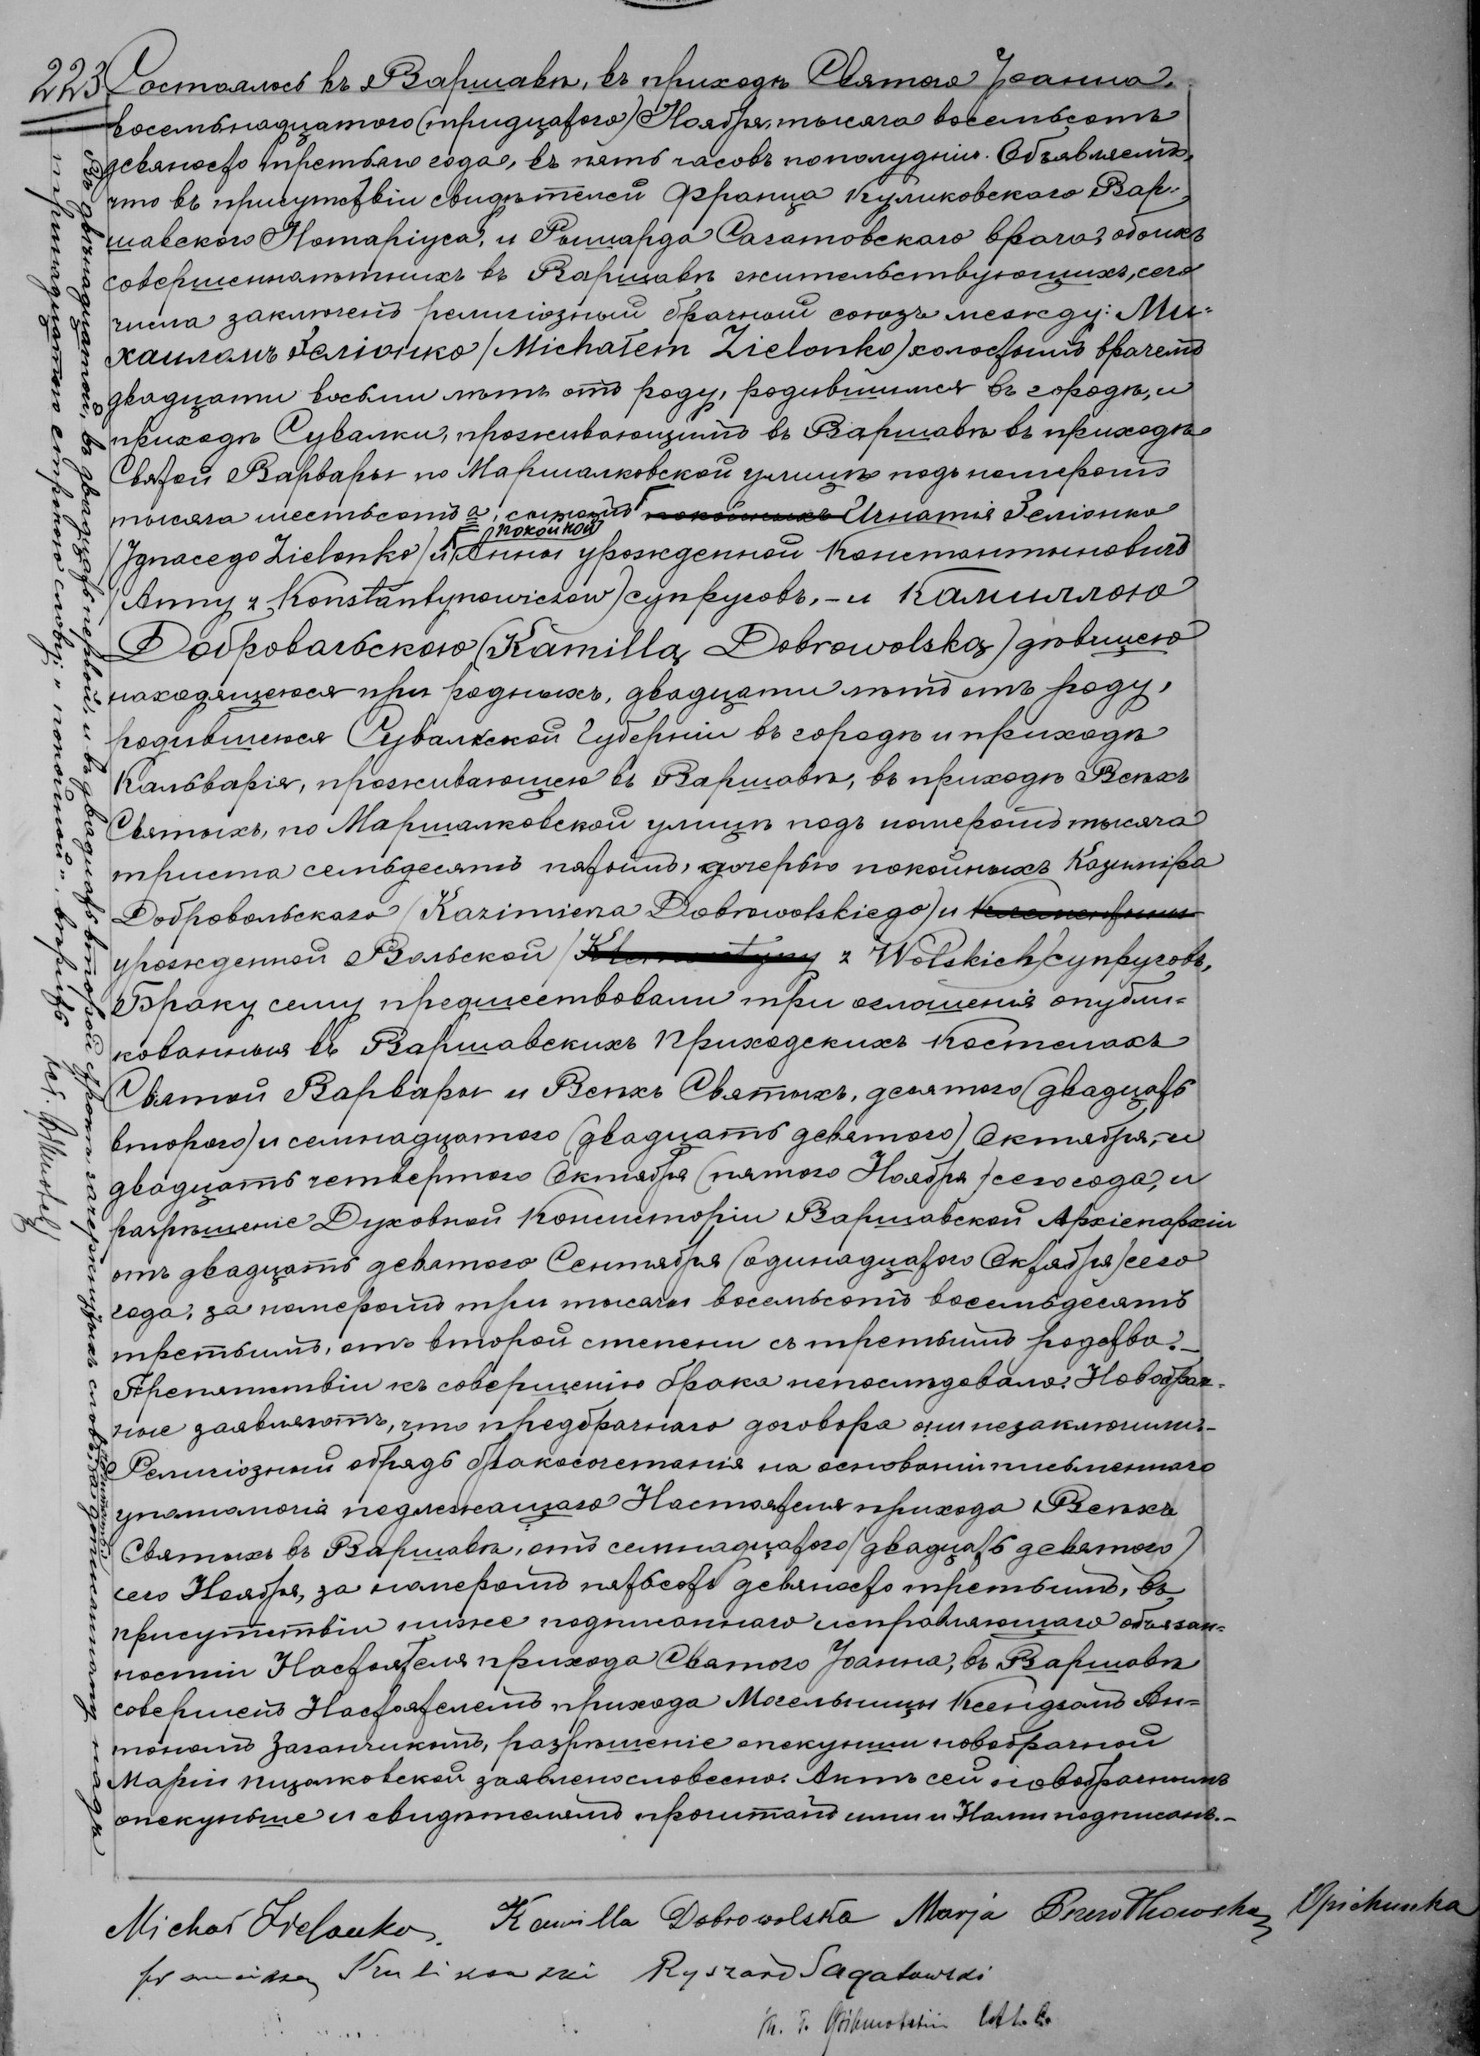 223
Состоялось въ Варшавѣ, въ приходѣ Святаго Іоанна,
восемьнадцатого (тридцатого) Ноября, тысяча восемьсотъ
девяносто третьяго года, въ пять часовъ пополудни. Объявляемъ,
что въ присутствіи свидѣтелей Франца Куликовского Вар-
шавского Нотаріуса, и Рышарда Сагатовскаго врача, обоихъ
совершеннолѣтнихъ въ Варшавѣ жительствующихъ, сего
числа заключенъ религіозный брачный союзъ между: Ми-
хаиломъ Зеліонко (Michałem Zielonko) холостымъ врачемъ
двадцати восьми лѣтъ отъ роду, родившимся въ городѣ, и
приходѣ Сувалки, проживающимъ въ Варшавѣ въ приходѣ
Святой Варвары по Маршалковской улицѣ подъ номеромъ
тысяча шестьсотъ а, сыномъ покойныхъ Игнатія Зеліонко
(Ignacego Zielonko) и покойной Анны урожденной Константыновичъ
(Anny z Konstantynowiczów) супруговъ, – и Камиллою
Добровольскою (Kamillą Dobrowolską) дѣвицею
находящеюся при родныхъ, двадцати лѣтъ отъ роду,
родившеюся Сувалкской Губерніи въ городѣ и приходѣ
Кальварія, проживающею въ Варшавѣ, въ приходѣ Всѣхъ
Святыхъ, по Маршалковской улицѣ подъ номеромъ тысяча
триста семьдесятъ пятымъ, дочерью покойныхъ Казиміра
Добровольскаго (Kazimierza Dobrowolskiego) и Клементины
урожденной Вольской (Klementyny z Wolskich) супруговъ,
Браку сему предшествовали три оглашенія опубли-
кованныя въ Варшавскихъ Приходскихъ Костелахъ
Святой Варвары и Всѣхъ Святыхъ, десятого (двадцать
второго) и семнадцатого (двадцать девятого) Октября, и
двадцать четвертого Октября (пятого Ноября) сего года, и
разрѣшеніе Духовной Консисторіи Варшавской Архіепархіи
отъ двадцать девятого Сентября (одинадцатого Октября) сего
года, за номеромъ три тысячи восемьсотъ восемьдесятъ
третьимъ, отъ второй степени съ третьимъ родства. –
Препятствіи къ совершенію брака непослѣдовало. Новобрач-
ные заявляютъ, что предбрачнаго договора они незаключили. –
Религіозный обрядъ бракосочетанія на основаніи письменнаго
уполномочія подлежащаго Настоятеля прихода Всѣхъ
Святыхъ въ Варшавѣ, отъ семнадцатого (двадцать девятого)
сего Ноября, за номеромъ пятьсотъ девяносто третьимъ, въ
присутствіи ниже подписаннаго исправляющаго обязан-
ности Настоятеля прихода Святаго Іоанна, въ Варшавѣ
совершенъ Настоятелемъ прихода Могельницы Ксендзомъ Ан-
тономъ Заганчикомъ, разрѣшеніе опекунши новобрачной
Маріи заявлено словесно. Актъ сей новобрачнымъ
опекуншѣ и свидѣтелямъ прочитанъ ими и Нами подписанъ. –
Въ двѣнадцатой, въ двадцать первой, и въ двадцать второй строкѣ зачеркнутыхъ словъ надъ
тринадцатою строкою слово: „покойной", вѣритъ
Michał Zielonko Kamilla Dobrowolska Marja Opiekunka
Franciszek Kulikowski Ryszard Sagatowski